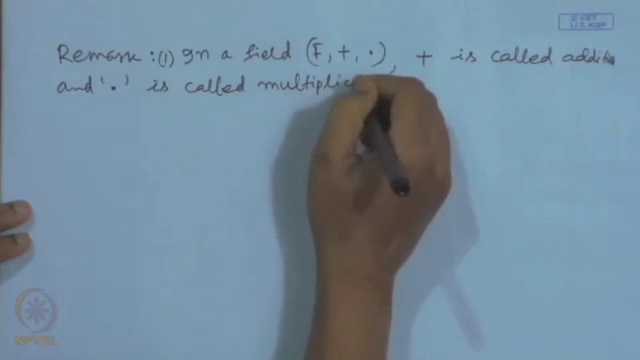 © CET
I.I.T. KGP
Remark : (1) In a field (F, +, ·), + is called additio
and '·' is called multiplic
NPTEL